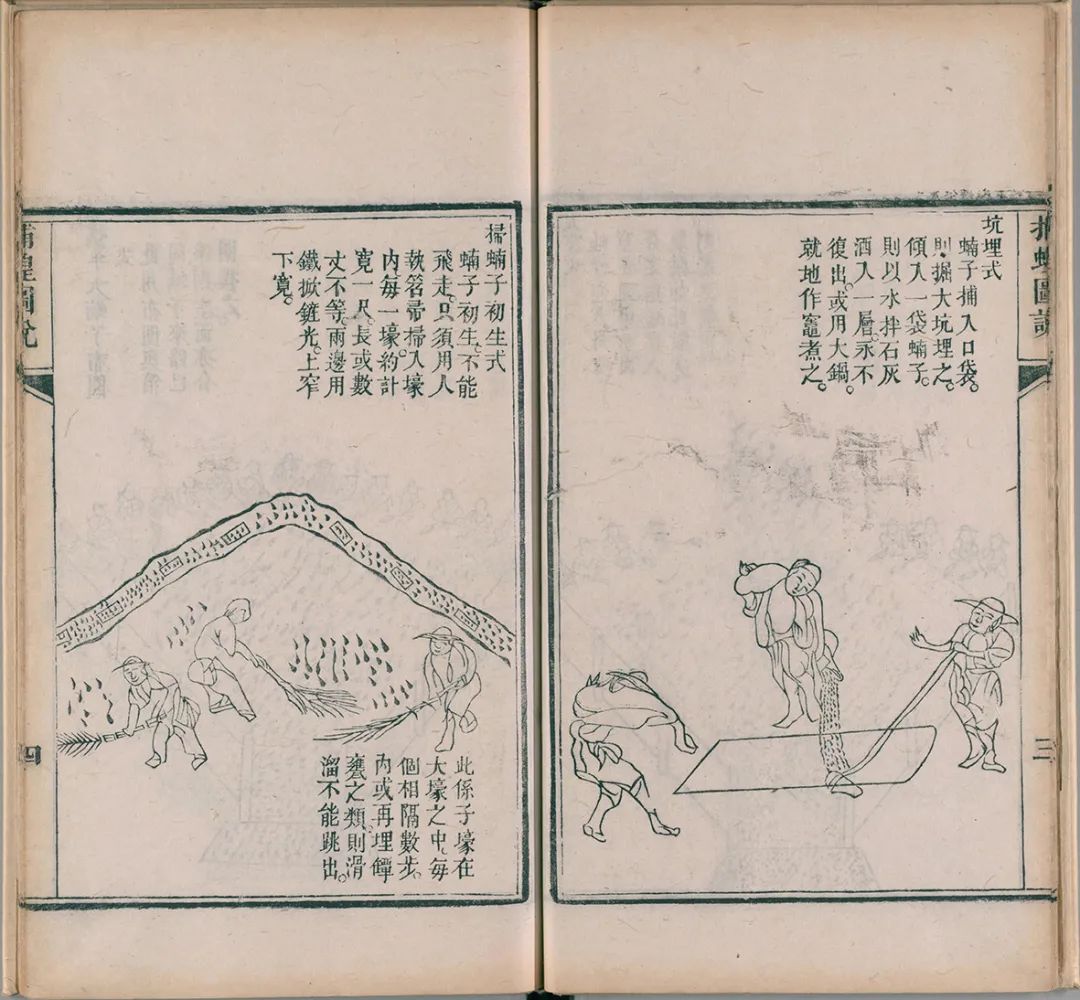 捕蝗圖說
坑埋式
蝻子捕入口袋。
則掘大坑埋之。
傾入一袋蝻子。
則以水拌石灰
洒入一層。永不
復出。或用大鍋。
就地作竈煮之。
三
掃蝻子初生式
蝻子初生。不能
飛走。只須用人
執笤帚掃入壕
內。每一壕。約計
寬一尺。長或數
丈不等。兩邊用
鐵掀鏟光。上窄
下寬。
此係子壕在
大壕之中。每
個相隔數步。
內或再埋罈
甕之類。則滑
溜不能跳出。
捕蝗圖說
四